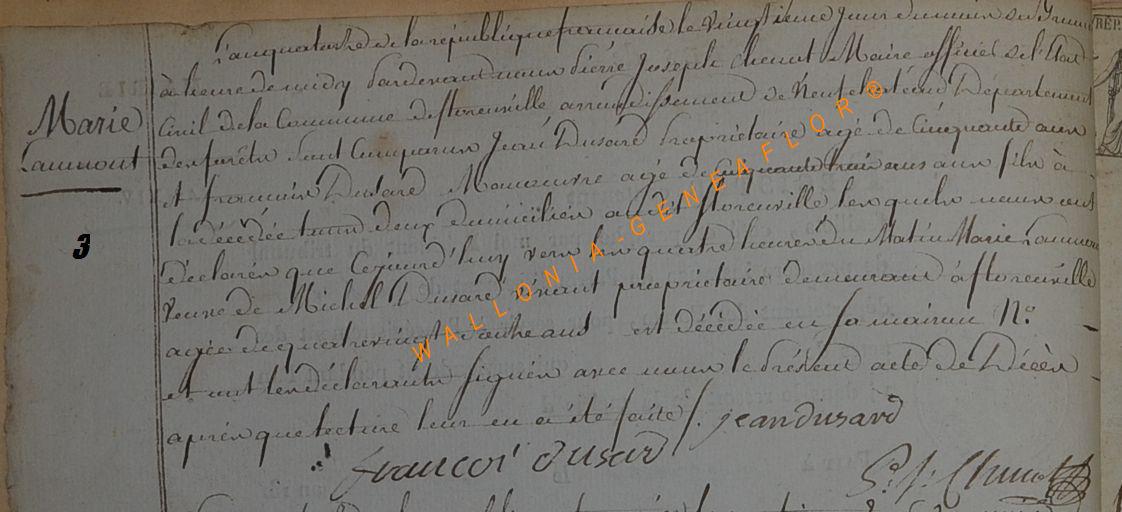 L'an quatorze de la république francaise le vingtieme Jour du mois de
à heure de midy Pardevant nous Pierre Joseph Clement Maire officier de l'Etat
Marie
Civil de la Commune de florenville arrondissement de Neufchateau Département
Laumont
des forêts sont Comparus Jean Dusard Propriétaire agé de Cinquante ans
et francois Dusard Manoeuvre agé de ans aux fils à
la décédée tous deux domiciliés audit florenville lesquels nous ont
3
déclarés que Cejourd'huy vers les quatre heures du Matin Marie Laumont
veuve de Michel Dusard vivant propriétaire demeurant à florenville
agée de quatrevingt ans est décédée en sa maison No.
et ont les déclarants signés avec nous le présent acte de Décès
aprés que lecture leur en a été faite /. jean dusard
francoi dusard
P. J. Clement
WALLONIA-GENEAFLOR®
RÉP